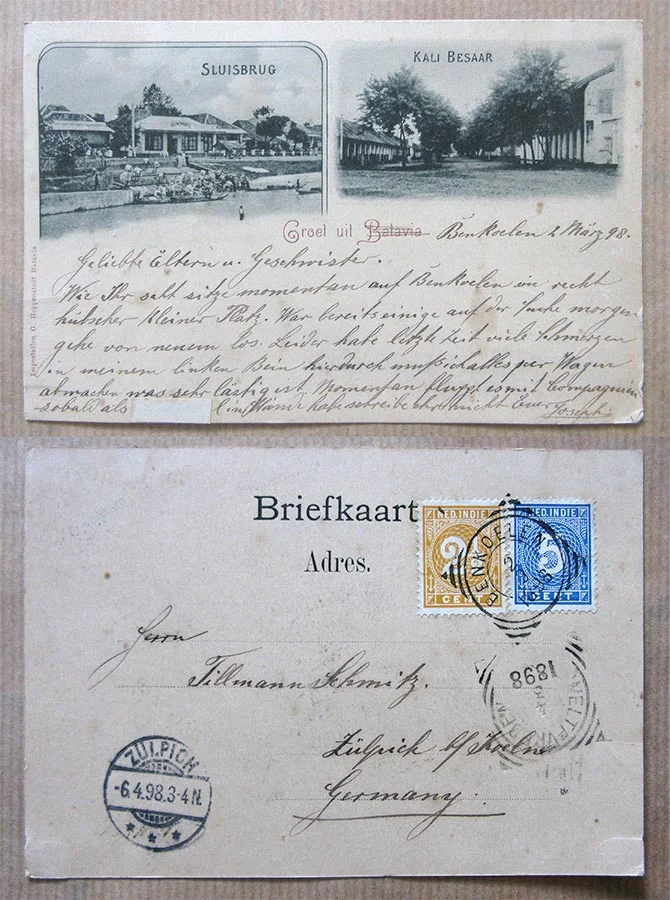 SLUISBRUG
KALI BESAAR
Groet uit Batavia Benkoelen 2 März 98.
Geliebte Eltern u. Geschwister.
Wie Ihr seht sitze momentan auf Benkoelen ein recht
hübscher kleiner Platz. War bereits einige auf der Suche morgen
gehe von neuem los. Leider habe letzte Zeit viele Schmerzen
in meinem linken Bein hierdurch muß ich alles per Wagen
abmachen was sehr lästig ist. Momentan es mit Compagnien
sobald als habe schreibe Euer Joseph
Importation G. Batavia
Briefkaart
Adres.
NED. INDIE
2½
CENT
NED. INDIE
5
CENT
BENKOELEN
2
3
1898
Herrn
Tillmann Schmitz.
Zülpich b/ Koeln
Germany.
1898
WELTEVREDEN
ZÜLPICH
-6.4.98.3-4N.